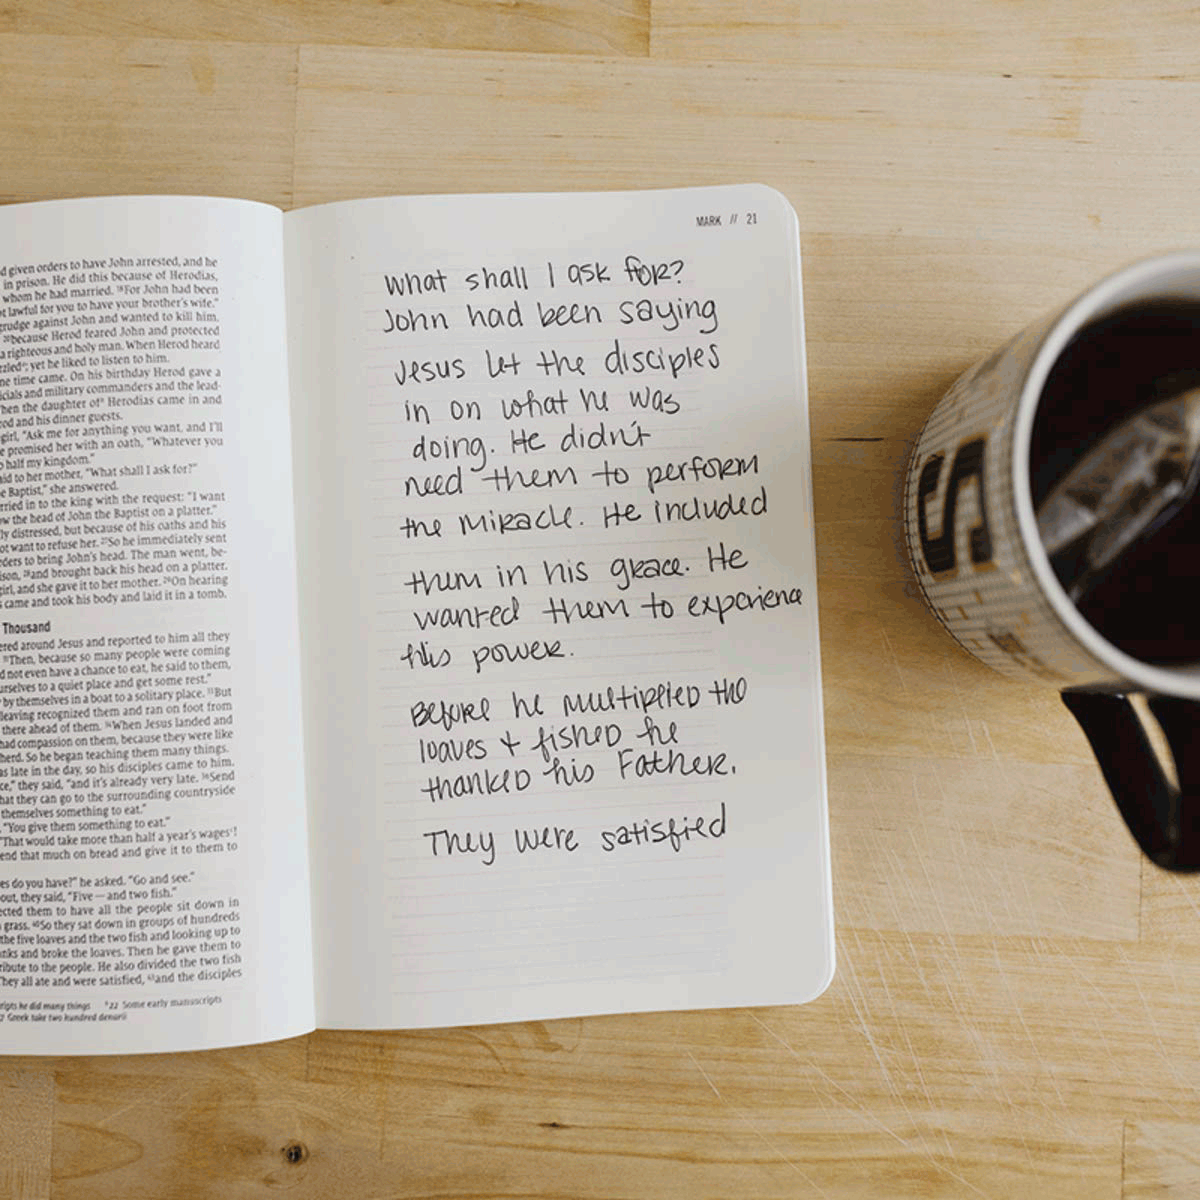 d given orders to have John arrested, and he
in prison. He did this because of Herodias,
whom he had married. 18For John had been
t lawful for you to have your brother's wife."
grudge against John and wanted to kill him.
20because Herod feared John and protected
a righteous and holy man. When Herod heard
zzled; yet he liked to listen to him.
ne time came. On his birthday Herod gave a
icials and military commanders and the lead-
hen the daughter of Herodias came in and
rod and his dinner guests.
girl, "Ask me for anything you want, and I'll
e promised her with an oath, "Whatever you
o half my kingdom."
aid to her mother, "What shall I ask for?"
e Baptist," she answered.
rried in to the king with the request: "I want
w the head of John the Baptist on a platter."
ly distressed, but because of his oaths and his
ot want to refuse her. 27So he immediately sent
ders to bring John's head. The man went, be-
ison, 28and brought back his head on a platter.
girl, and she gave it to her mother. 29On hearing
s came and took his body and laid it in a tomb.
Thousand
ered around Jesus and reported to him all they
31Then, because so many people were coming
d not even have a chance to eat, he said to them,
urselves to a quiet place and get some rest."
by themselves in a boat to a solitary place. 33But
leaving recognized them and ran on foot from
there ahead of them. 34When Jesus landed and
had compassion on them, because they were like
herd. So he began teaching them many things.
as late in the day, so his disciples came to him.
ce," they said, "and it's already very late. 36Send
hat they can go to the surrounding countryside
themselves something to eat."
"You give them something to eat."
"That would take more than half a year's wages!
end that much on bread and give it to them to
es do you have?" he asked. "Go and see."
out, they said, "Five—and two fish."
cted them to have all the people sit down in
grass. 40So they sat down in groups of hundreds
the five loaves and the two fish and looking up to
nks and broke the loaves. Then he gave them to
ribute to the people. He also divided the two fish
They all ate and were satisfied, 43and the disciples
ripts he did many things 22 Some early manuscripts
7 Greek take two hundred denarii
MARK // 21
What shall I ask for?
John had been saying
Jesus let the disciples
in on what he was
doing. He didn't
need them to perform
the miracle. He included
them in his grace. He
wanted them to experience
his power.
Before he multiplied the
loaves + fished he
thanked his Father.
They were satisfied
S